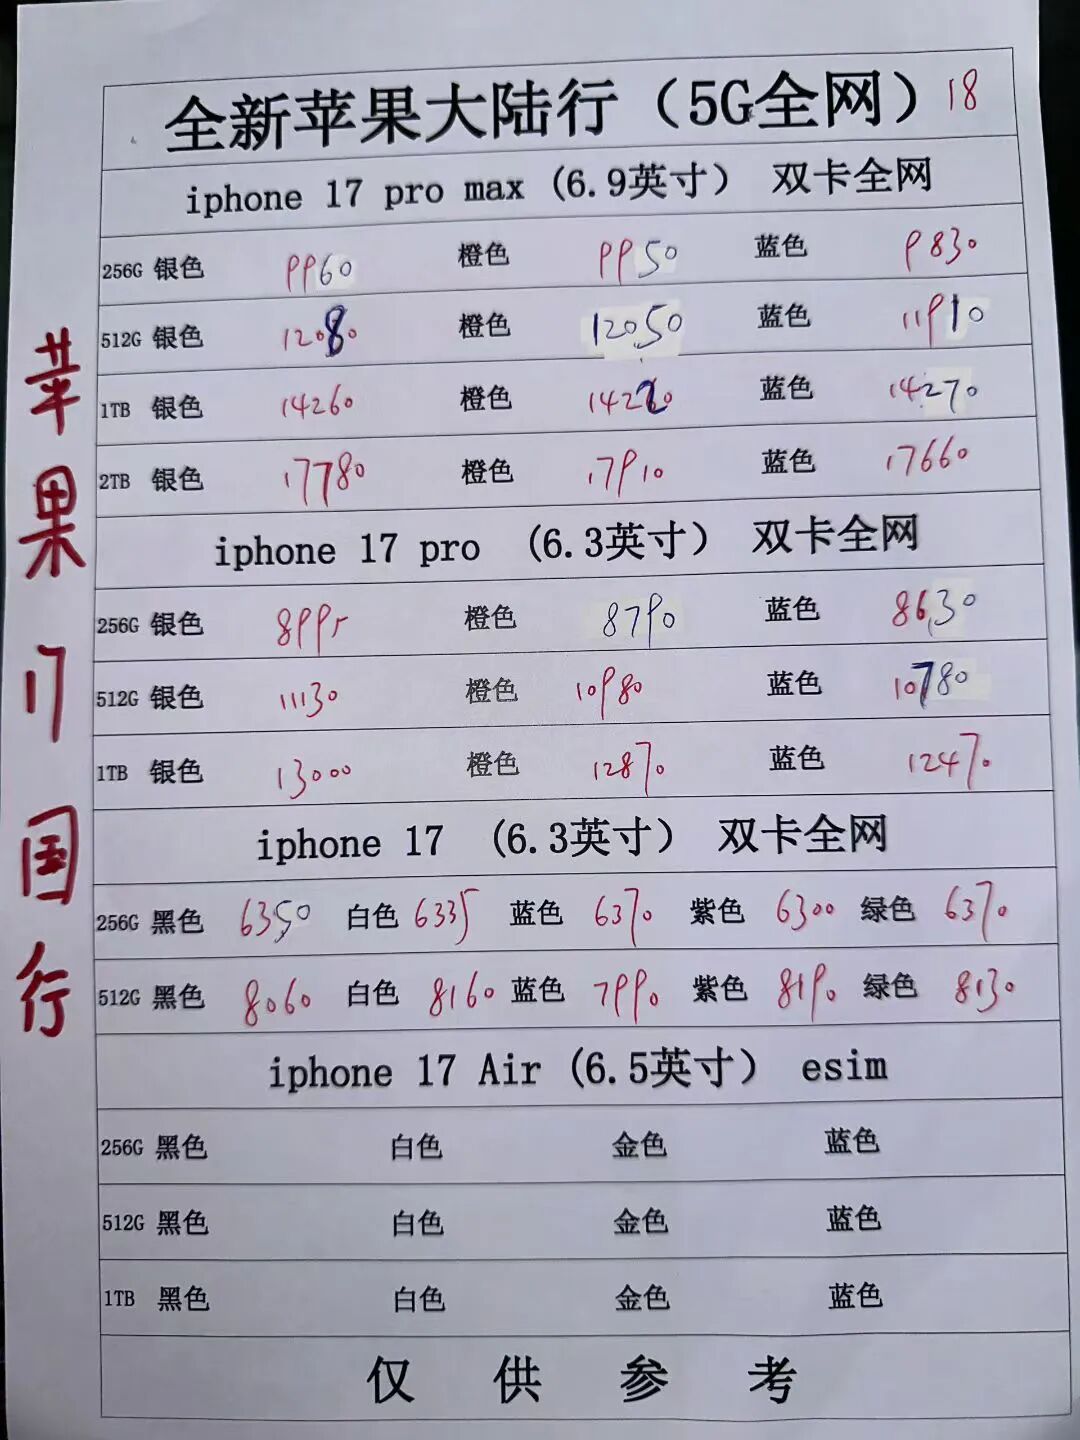 全新苹果大陆行（5G全网）18
iphone 17 pro max (6.9英寸） 双卡全网
256G 银色 9960 橙色 9950 蓝色 9830
512G 银色 12080 橙色 12050 蓝色 11910
1TB 银色 14260 橙色 蓝色 14270
2TB 银色 17780 橙色 17910 蓝色 17660
iphone 17 pro （6.3英寸） 双卡全网
256G 银色 8995 橙色 8790 蓝色 8630
512G 银色 11130 橙色 10980 蓝色 10780
1TB 银色 13000 橙色 12870 蓝色 12470
iphone 17 （6.3英寸） 双卡全网
256G 黑色 6350 白色 6335 蓝色 6370 紫色 6300 绿色 6370
512G 黑色 8060 白色 8160 蓝色 7990 紫色 8190 绿色 8130
iphone 17 Air (6.5英寸） esim
256G 黑色 白色 金色 蓝色
512G 黑色 白色 金色 蓝色
1TB 黑色 白色 金色 蓝色
仅供参考
苹果17国行